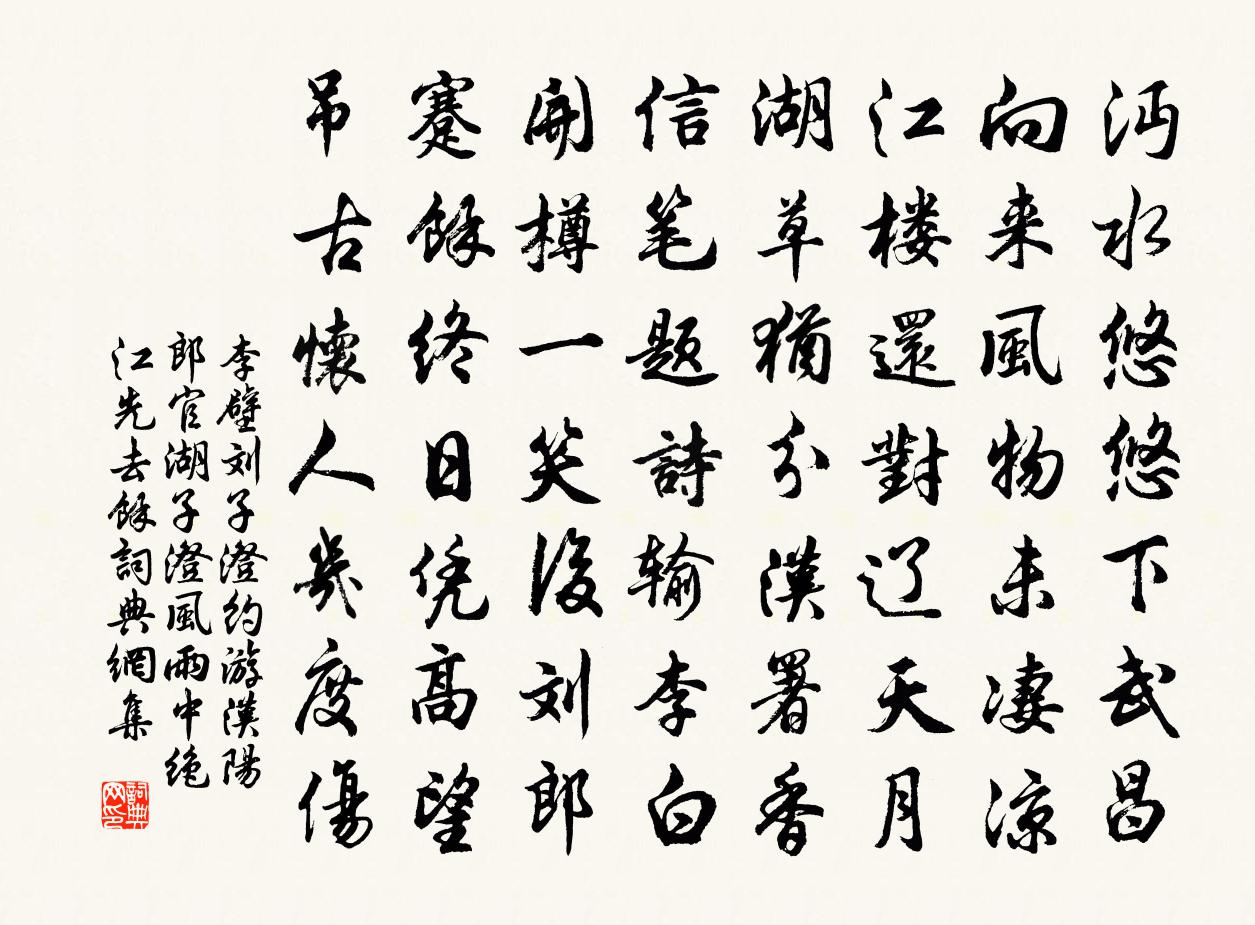 沔水悠悠下武昌
向来風物未凄涼
江楼還對辽天月
湖草猶分漢署香
信笔題詩输李白
開樽一笑後刘郎
蹇餘终日凭高望
吊古懷人幾度傷
李壁刘子澄约游漢陽
郎官湖子澄風雨中绝
江先去餘詞典網集
詞典网印